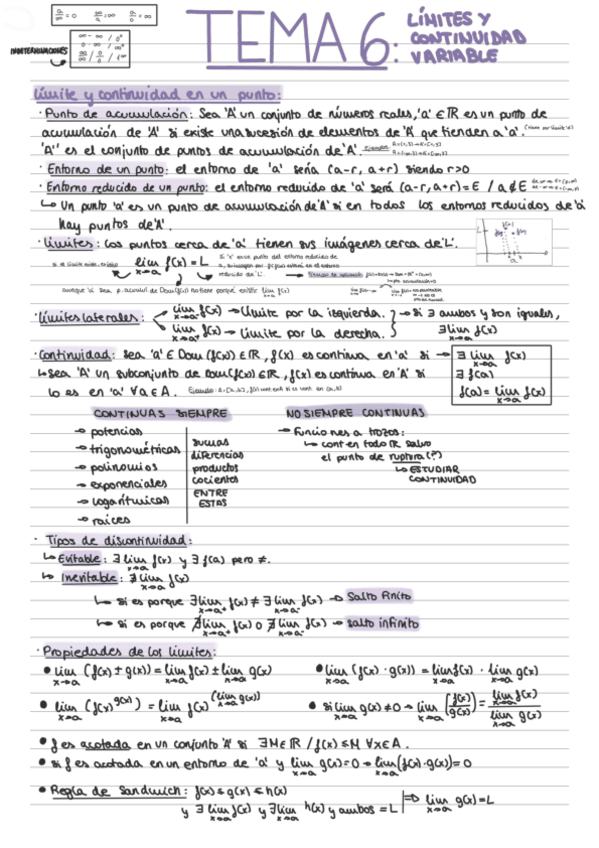 TEMA 6: LÍMITES Y CONTINUIDAD VARIABLE
INDETERMINACIONES
∞ - ∞ / 0⁰
0 · ∞ / ∞⁰
Límite y continuidad en un punto:
· Punto de acumulación: Sea 'A' un conjunto de números reales, 'a' ∈ ℝ es un punto de
acumulación de 'A' si existe una sucesión de elementos de 'A' que tienden a 'a'.
'A'' es el conjunto de puntos de acumulación de 'A'. Ejemplo:
· Entorno de un punto: el entorno de 'a' sería (a-r, a+r) siendo r>0
· Entorno reducido de un punto: el entorno reducido de 'a' será (a-r, a+r) = E / a ∉ E
↳ Un punto 'a' es un punto de acumulación de 'A' si en todos los entornos reducidos de 'a'
hay puntos de 'A'.
· Límites: Los puntos cerca de 'a' tienen sus imágenes cerca de 'L'.
lim x→a f(x) = L
· Límites laterales: lim x→a⁻ f(x) → Límite por la izquierda. → si ∃ ambos y son iguales,
lim x→a⁺ f(x) → Límite por la derecha. ∃ lim x→a f(x)
· Continuidad: Sea 'a' ∈ Dom (f(x)) ∈ ℝ, f(x) es continua en 'a' si → ∃ lim x→a f(x)
∃ f(a)
f(a) = lim x→a f(x)
↳ Sea 'A' un subconjunto de Dom (f(x)) ∈ ℝ, f(x) es continua en 'A' si
lo es en 'a' ∀a ∈ A.
CONTINUAS SIEMPRE
→ potencias
→ trigonométricas
→ polinomios
→ exponenciales
→ logarítmicas
→ raíces
sumas
diferencias
productos
cocientes
ENTRE
ESTAS
NO SIEMPRE CONTINUAS
→ Funciones a trozos:
↳ cont en todo ℝ salvo
el punto de ruptura (?)
↳ ESTUDIAR
CONTINUIDAD
· Tipos de discontinuidad:
↳ Evitable: ∃ lim x→a f(x) y ∃ f(a) pero ≠.
↳ Inevitable: ∄ lim x→a f(x)
↳ si es porque ∃ lim x→a⁺ f(x) ≠ ∃ lim x→a⁻ f(x) → Salto finito
↳ si es porque ∄ lim x→a⁺ f(x) o ∄ lim x→a⁻ f(x) → salto infinito
· Propiedades de los límites:
● lim x→a (f(x) ± g(x)) = lim x→a f(x) ± lim x→a g(x)
● lim x→a (f(x) · g(x)) = lim x→a f(x) · lim x→a g(x)
● lim x→a (f(x)^g(x)) = lim x→a f(x)^(lim x→a g(x))
● si lim x→a g(x) ≠ 0 → lim x→a (f(x)/g(x)) = lim x→a f(x) / lim x→a g(x)
● f es acotada en un conjunto 'A' si ∃ M ∈ ℝ / f(x) ≤ M ∀x ∈ A.
● si f es acotada en un entorno de 'a' y lim x→a g(x) = 0 → lim x→a (f(x)·g(x)) = 0
● Regla de Sandwich: f(x) ≤ g(x) ≤ h(x)
y ∃ lim x→a f(x) y ∃ lim x→a h(x) y ambos = L ⇒ lim x→a g(x) = L